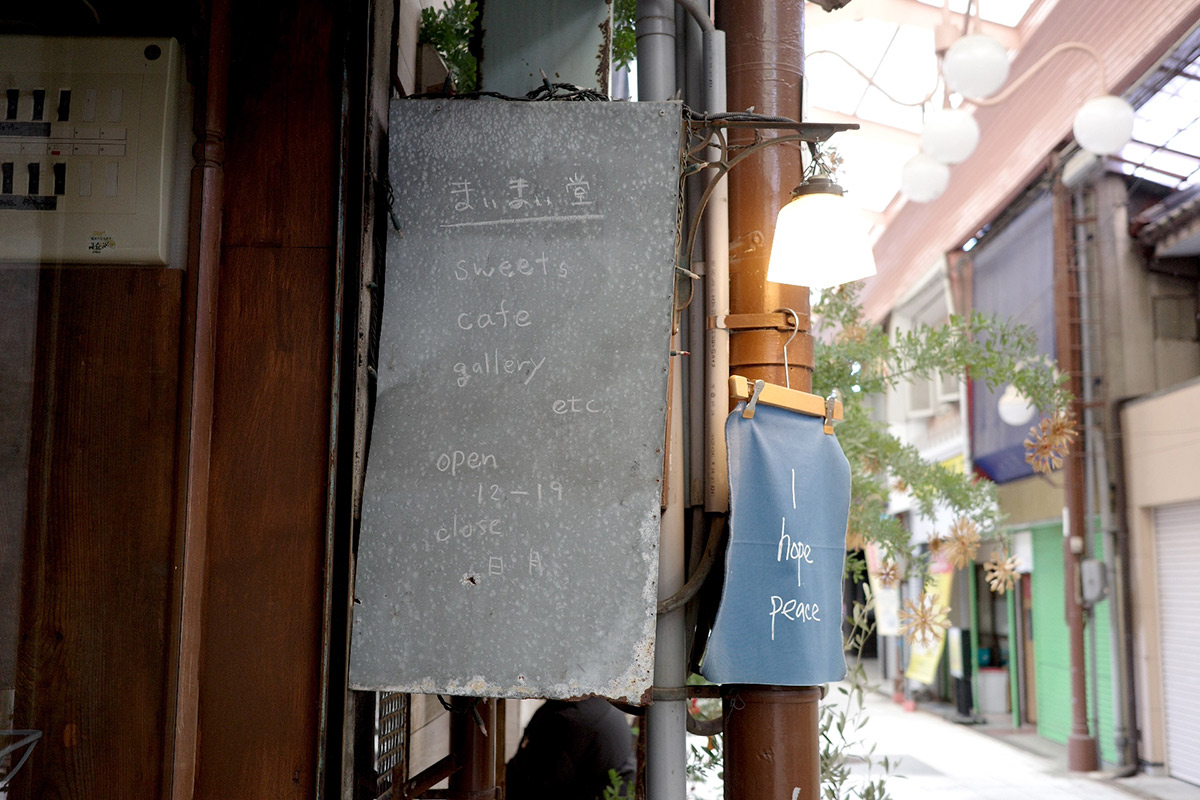 まぃまぃ堂
sweets
cafe
gallery
etc.
open
12-19
close
日 月
I
hope
peace